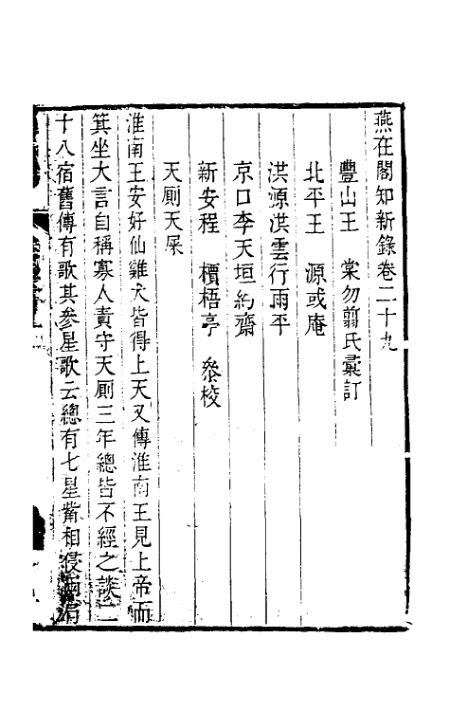 燕在閣知新錄卷二十九
豐山王　棠勿翦氏彙訂
北平王　源或庵
洪源洪雲行雨平
京口李天垣約齋
新安程　檟梧亭　叅校
天厠天屎
淮南王安好仙雞犬皆得上天又傳淮南王見上帝而
箕坐大言自稱寡人責守天厠三年總皆不經之談二
十八宿舊傳有歌其參星歌云總有七星觜相侵兩肩